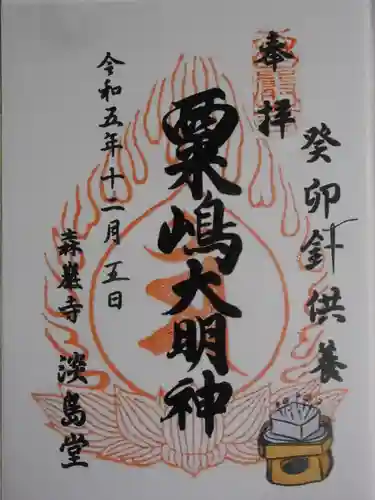 奉拝
癸卯針供養
粟嶋大明神
令和五年十二月五日
森巖寺 淡島堂